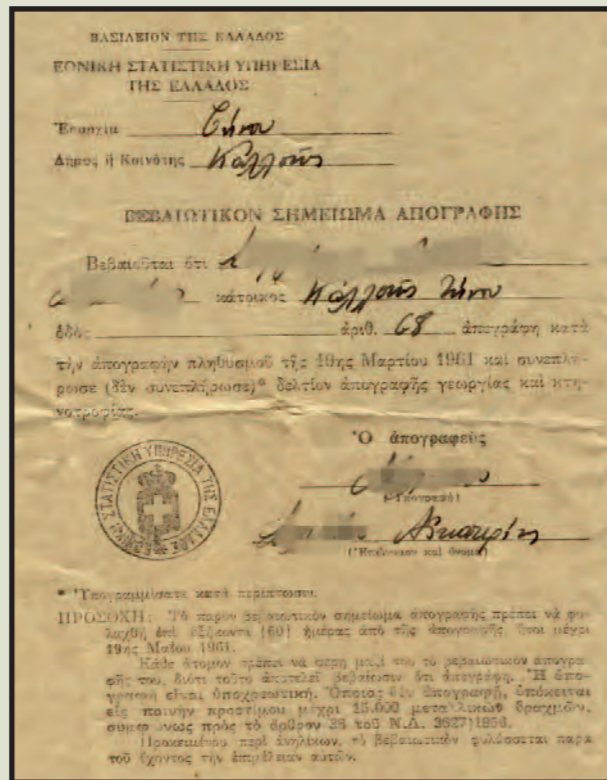 ΒΑΣΙΛΕΙΟΝ ΤΗΣ ΕΛΛΑΔΟΣ
ΕΘΝΙΚΗ ΣΤΑΤΙΣΤΙΚΗ ΥΠΗΡΕΣΙΑ
ΤΗΣ ΕΛΛΑΔΟΣ
Ἐπαρχία Τήνου
Δῆμος ἢ Κοινότης Καλλονῆς
ΒΕΒΑΙΩΤΙΚΟΝ ΣΗΜΕΙΩΜΑ ΑΠΟΓΡΑΦΗΣ
Βεβαιοῦται ὅτι
κάτοικος Καλλονῆς Τήνου
ὁδὸς ἀριθ. 68 ἀπεγράφη κατὰ
τὴν ἀπογραφὴν πληθυσμοῦ τῆς 19ης Μαρτίου 1961 καὶ συνεπλή-
ρωσε (δὲν συνεπλήρωσε)* δελτίον ἀπογραφῆς γεωργίας καὶ κτη-
νοτροφίας.
Ὁ ἀπογραφεὺς
(Ὑπογραφὴ)
(Ἐπώνυμον καὶ ὄνομα)
ΕΘΝΙΚΗ ΣΤΑΤΙΣΤΙΚΗ ΥΠΗΡΕΣΙΑ ΤΗΣ ΕΛΛΑΔΟΣ
* Ὑπογραμμίσατε κατὰ περίπτωσιν.
ΠΡΟΣΟΧΗ: Τὸ παρὸν βεβαιωτικὸν σημείωμα ἀπογραφῆς πρέπει νὰ φυ-
λαχθῇ ἐπὶ ἑξήκοντα (60) ἡμέρας ἀπὸ τῆς ἀπογραφῆς, ἤτοι μέχρι
19ης Μαΐου 1961.
Κάθε ἄτομον πρέπει νὰ φέρῃ μαζί του τὸ βεβαιωτικὸν ἀπογρα-
φῆς του, διότι τοῦτο ἀποτελεῖ βεβαίωσιν ὅτι ἀπεγράφη. Ἡ ἀπο-
γραφὴ εἶναι ὑποχρεωτική. Ὅποιος δὲν ἀπογραφῇ, ὑπόκειται
εἰς ποινὴν προστίμου μέχρι 15.000 μεταλλικῶν δραχμῶν,
συμφώνως πρὸς τὸ ἄρθρον 28 τοῦ Ν.Δ. 3627)1956.
Προκειμένου περὶ ἀνηλίκων, τὸ βεβαιωτικὸν φυλάσσεται παρὰ
τοῦ ἔχοντος τὴν ἐπιμέλειαν αὐτῶν.